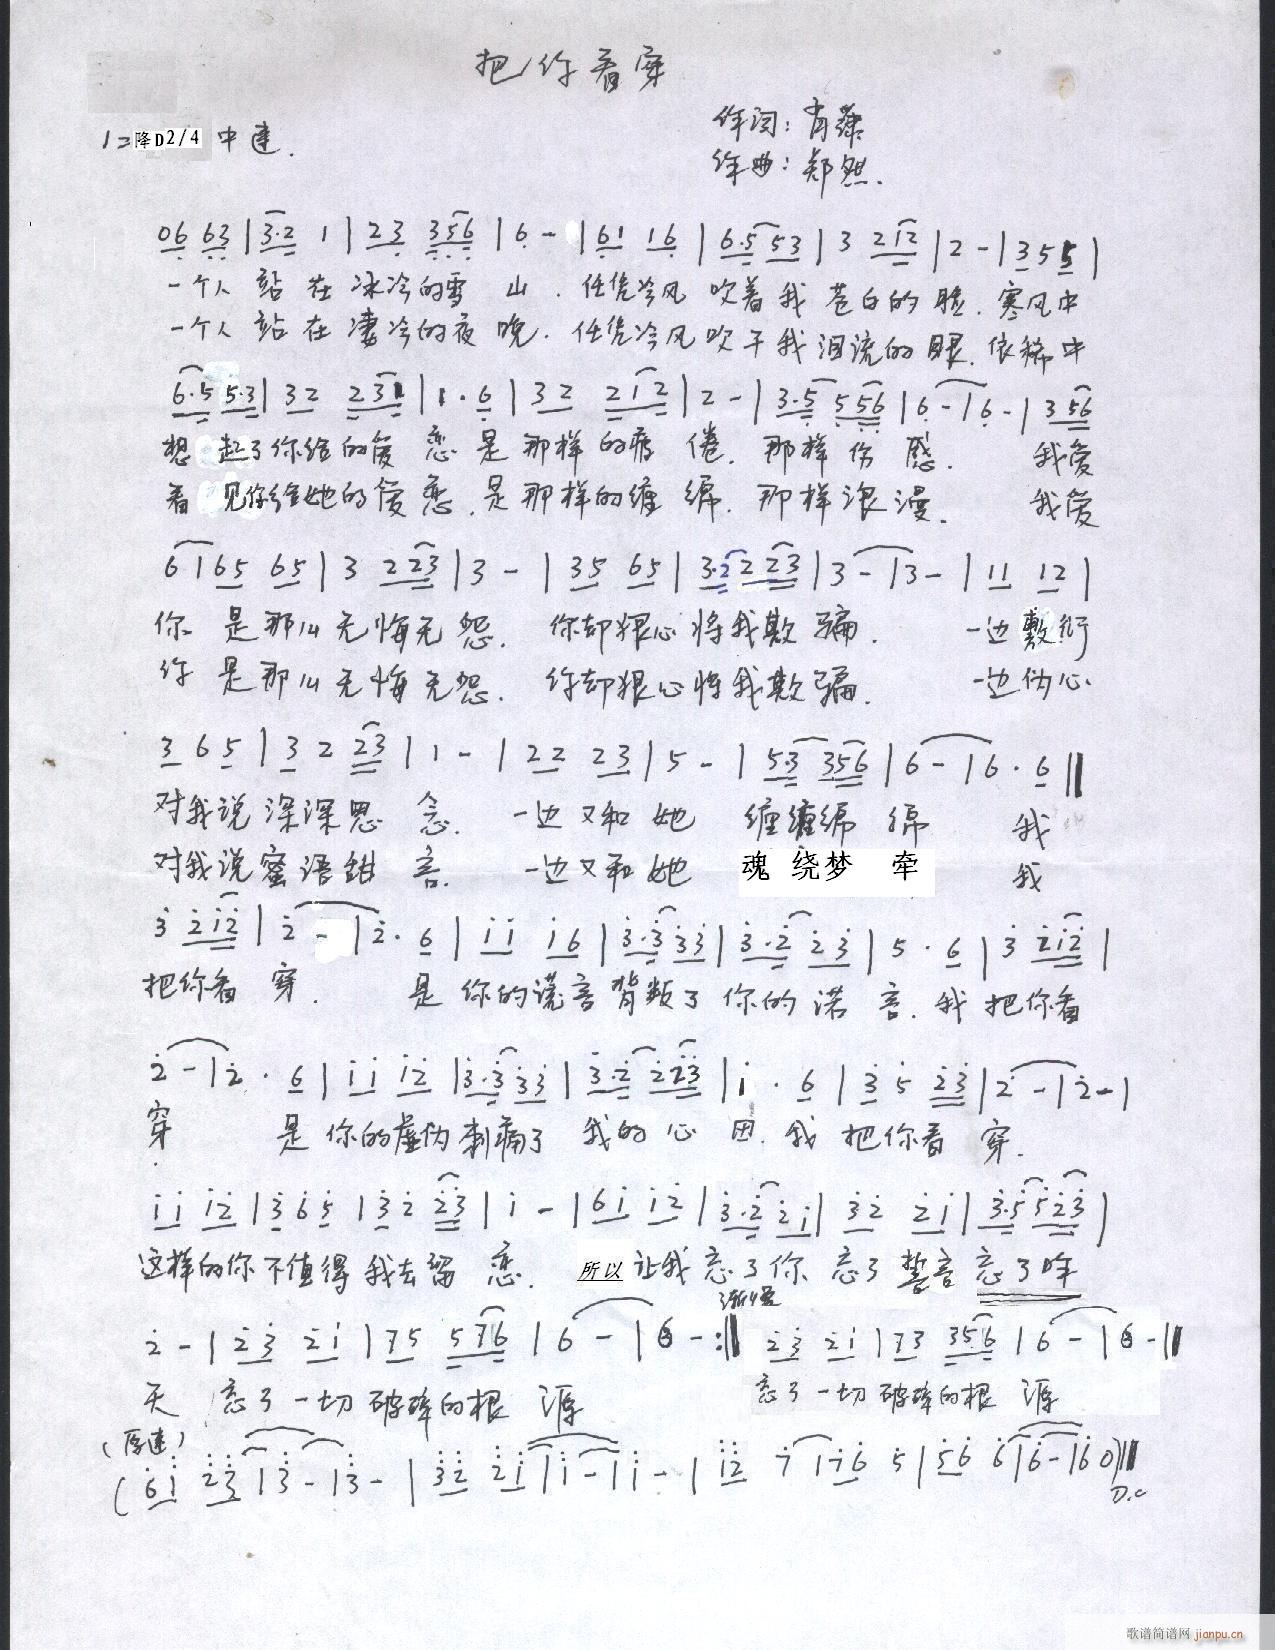 把你看穿
1=降D2/4 中速.
作词: 肖
作曲: 郑然.
06 63 | 3·2 1 | 23 356 | 6 - | 61 16 | 6·5 53 | 3 212 | 2 - | 3 5 5 |
一个人 站 在 冰冷的雪 山. 任凭冷风 吹着我 苍白的 脸. 寒风中
一个人 站 在 凄冷的夜 晚. 任凭冷风 吹干我 泪流的 眼. 依稀中
6·5 5·3 | 32 231 | 1·6 | 32 212 | 2 - | 3·5 556 | 6 - | 6 - | 3 56
想 起了你给的爱 恋 是 那样 的疲 倦. 那样 伤 感. 我爱
看 见你给她的爱 恋. 是 那样的缠 绵. 那样 浪 漫. 我爱
6 | 65 65 | 3 223 | 3 - | 35 65 | 3·22 23 | 3 - | 3 - | 11 12 |
你 是那么无悔无 怨. 你却狠心将我欺 骗. 一边敷衍
你 是那么无悔无 怨. 你却狠心将我欺 骗. 一边伪心
3 6 5 | 3 2 23 | 1 - | 22 23 | 5 - | 5·3 356 | 6 - | 6·6 ‖
对我说深深思 念. 一边又和她 缠缠绵 绵 我
对我说蜜语甜 言. 一边又和她 魂 绕梦 牵 我
3 212 | 2 - | 2·6 | 11 16 | 3·3 33 | 3·2 23 | 5·6 | 3 212 |
把你看 穿. 是 你的谎言背叛了 你的 诺 言. 我 把你看
2 - | 2·6 | 11 12 | 3·3 33 | 3·2 223 | 1·6 | 3 5 23 | 2 - | 2 - |
穿 是 你的虚伪刺痛了 我的 心 田. 我 把你看 穿.
11 12 | 3 6 5 | 3 2 23 | 1 - | 61 12 | 3·2 21 | 32 21 | 3·5 523 |
这样的你不值得 我去留 恋. 所以 让我 忘了你 忘了 誓言 忘了昨
渐慢
2 - | 23 21 | 75 576 | 6 - | 6 - :‖ 23 21 | 73 356 | 6 - | 6 - ‖
天 忘了一切破碎的根 源 忘了一切 破碎的根 源
(原速)
(61 23 | 3 - | 3 - | 32 21 | 1 - | 1 - | 12 7 | 76 5 | 56 6 | 6 - | 6 0) ‖
D.C
歌谱简谱网 jianpu.cn